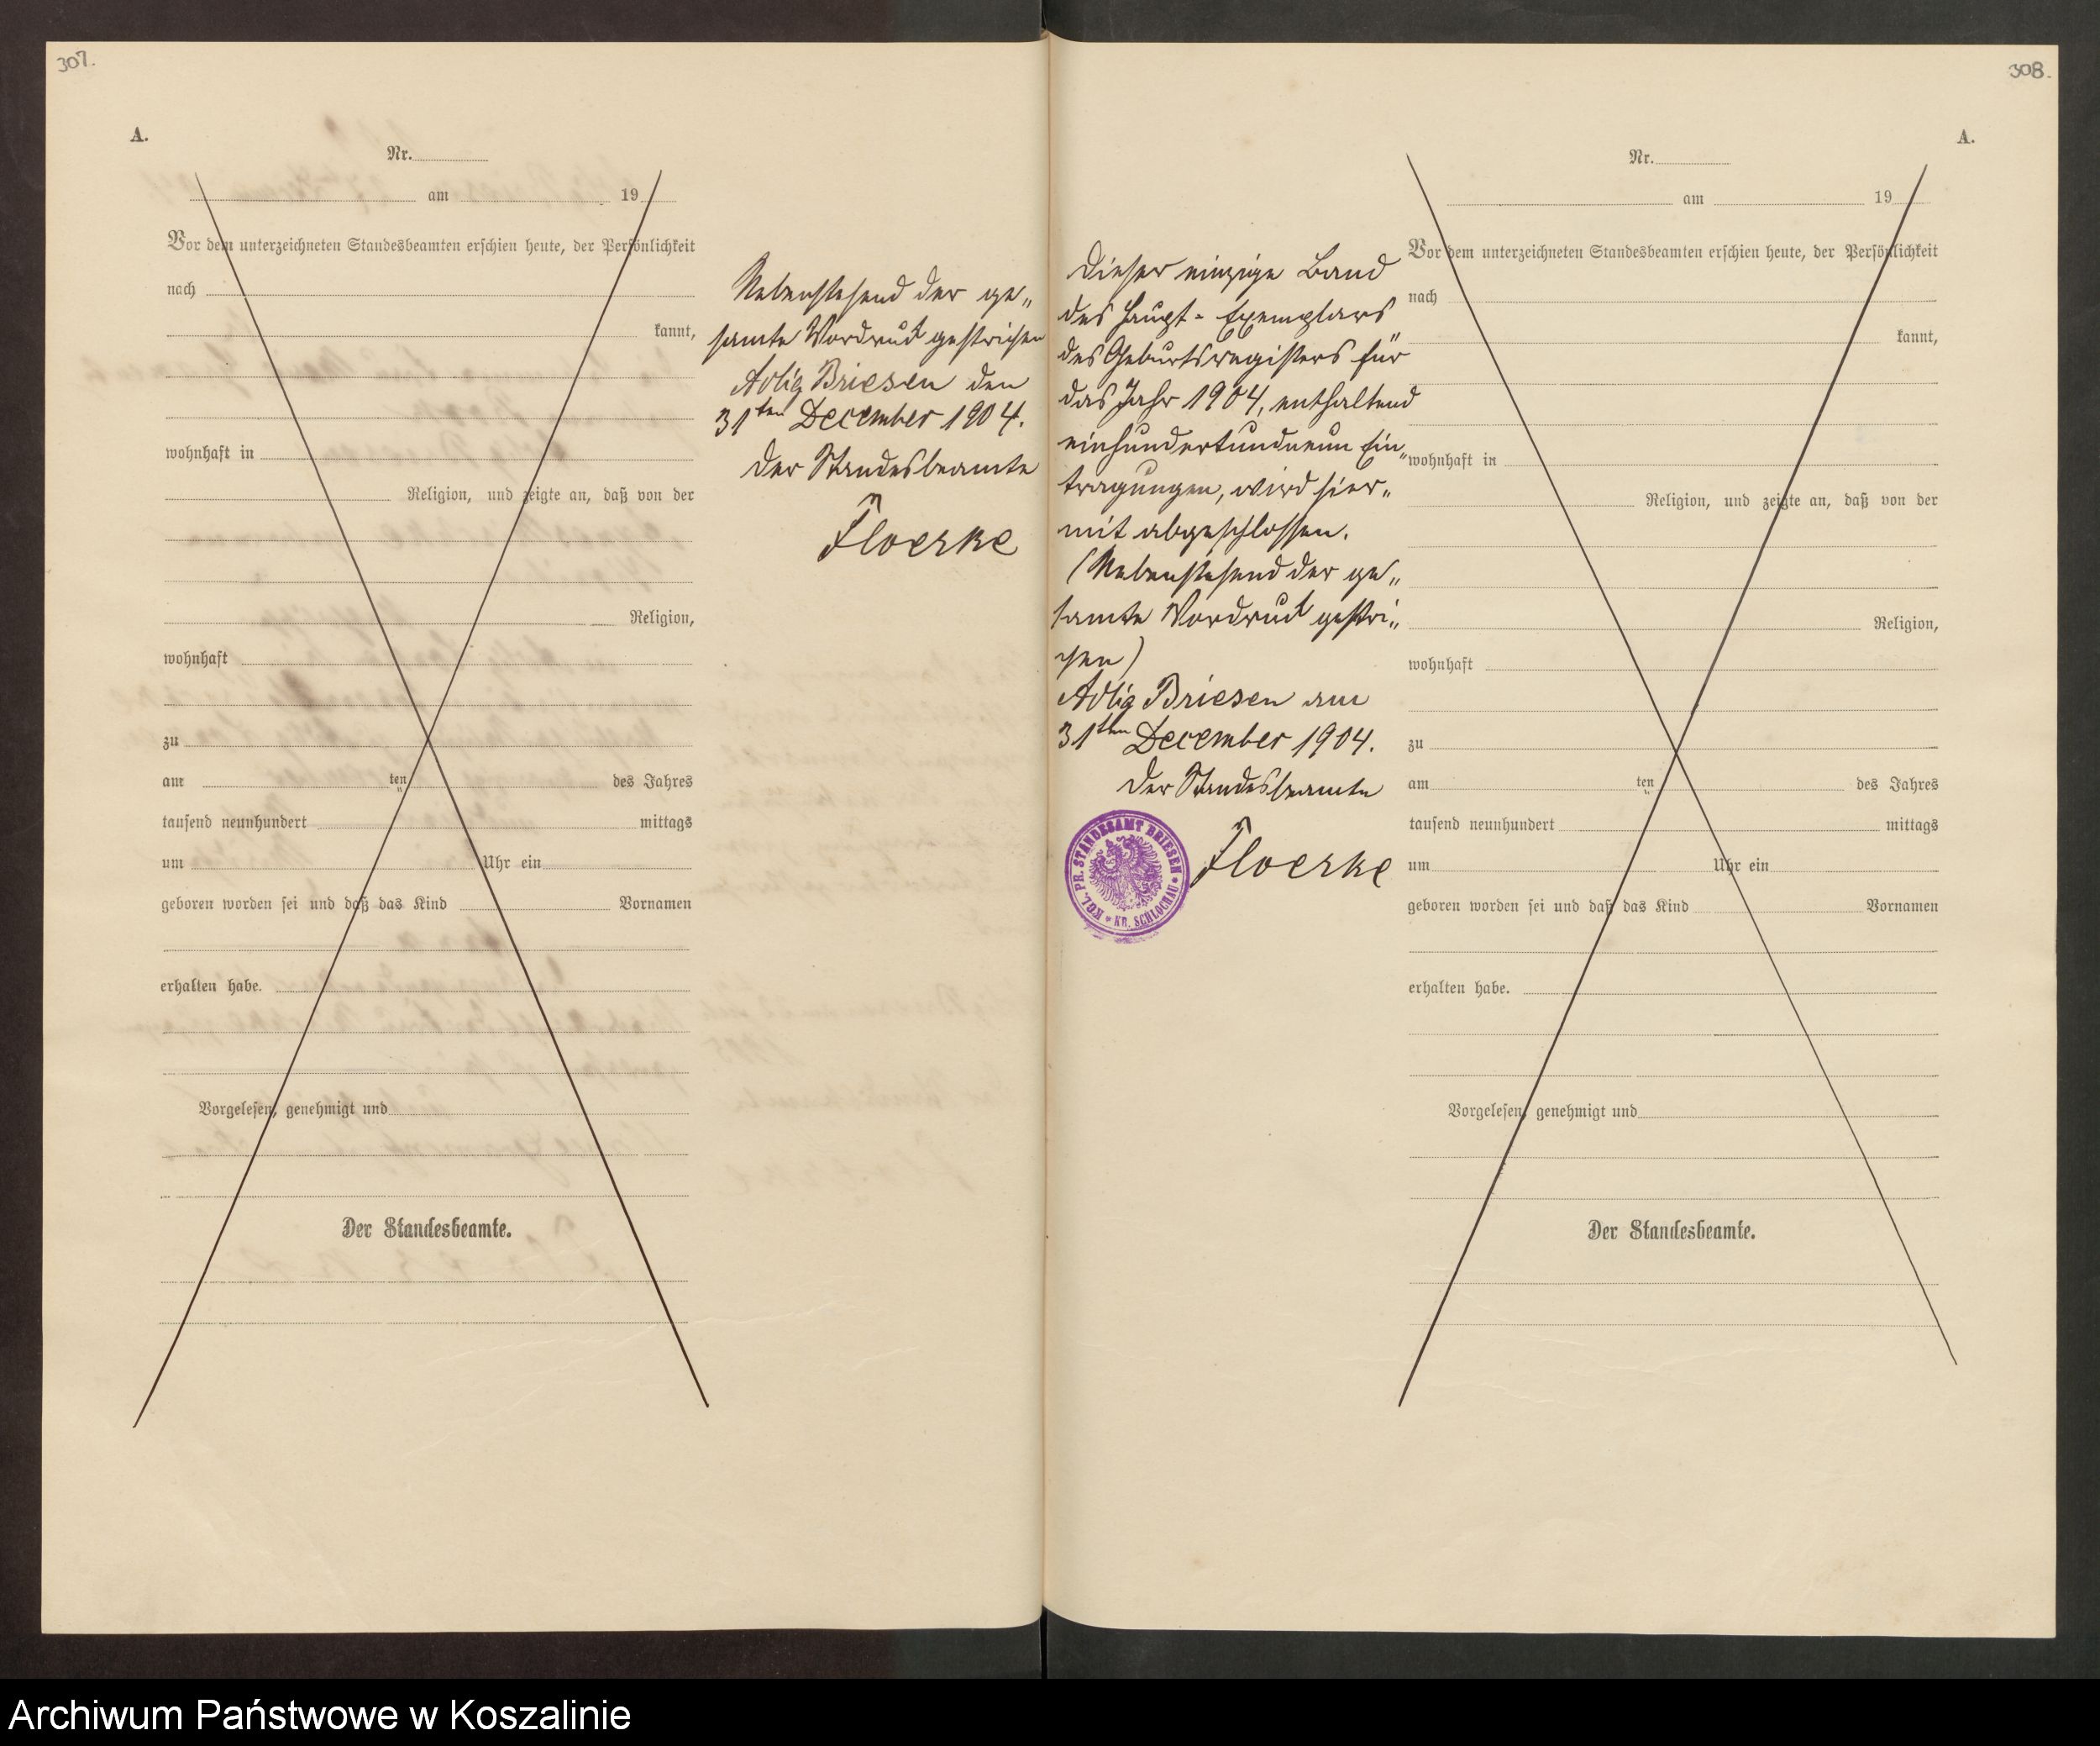 307.
A.
Nr.
am 19
Vor dem unterzeichneten Standesbeamten erschien heute, der Persönlichkeit
nach
kannt,
wohnhaft in
Religion, und zeigte an, daß von der
Religion,
wohnhaft
zu
am ten des Jahres
tausend neunhundert mittags
um Uhr ein
geboren worden sei und daß das Kind Vornamen
erhalten habe.
Vorgelesen, genehmigt und
Der Standesbeamte.
Nebenstehend der ge„
samte Vordruck gestrichen
Adlig Briesen den
31ten December 1904.
Der Standesbeamte
Floerke
308.
A.
Dieser einzige Band
des Haupt-Exemplars
des Geburtsregisters für
das Jahr 1904, enthaltend
einhundertundneun Ein„
tragungen, wird hier„
mit abgeschlossen.
(Nebenstehend der ge„
samte Vordruck gestri„
chen)
Adlig Briesen am
31ten December 1904.
Der Standesbeamte
Floerke
KGL. PR. STANDESAMT BRIESEN
* KR. SCHLOCHAU *
Nr.
am 19
Vor dem unterzeichneten Standesbeamten erschien heute, der Persönlichkeit
nach
kannt,
wohnhaft in
Religion, und zeigte an, daß von der
Religion,
wohnhaft
zu
am ten des Jahres
tausend neunhundert mittags
um Uhr ein
geboren worden sei und daß das Kind Vornamen
erhalten habe.
Vorgelesen, genehmigt und
Der Standesbeamte.
Archiwum Państwowe w Koszalinie